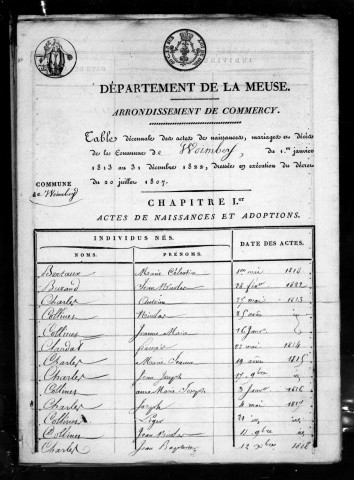 DÉPARTEMENT DE LA MEUSE.
ARRONDISSEMENT DE COMMERCY.
Tables décennales des actes de naissances, mariages et décès
de la Commune de Woimbey, du 1.er janvier
1813 au 31 décembre 1822, dressées en exécution du décret
du 20 juillet 1807.
COMMUNE
de Woimbey
CHAPITRE I.er
ACTES DE NAISSANCES ET ADOPTIONS.
INDIVIDUS NÉS.
DATE DES ACTES.
NOMS.
PRÉNOMS.
Marie Célestine 1er mai 1813
Burand Jean Nicolas 28 1822
Charles 27 mai 1813
Collines Nicolas 25 août id
Collines Jeanne Marie 16 id
22 mai 1814
Charles Marie 19 1815
Charles Jean Joseph 17 9bre id
Collines anne Marie Joseph 3 1816
Charles Joseph 4 mai 1817
Collines 21 id
Collines Jean Nicolas 11 9bre id
Charles Jean Baptiste 12 xbre 1818